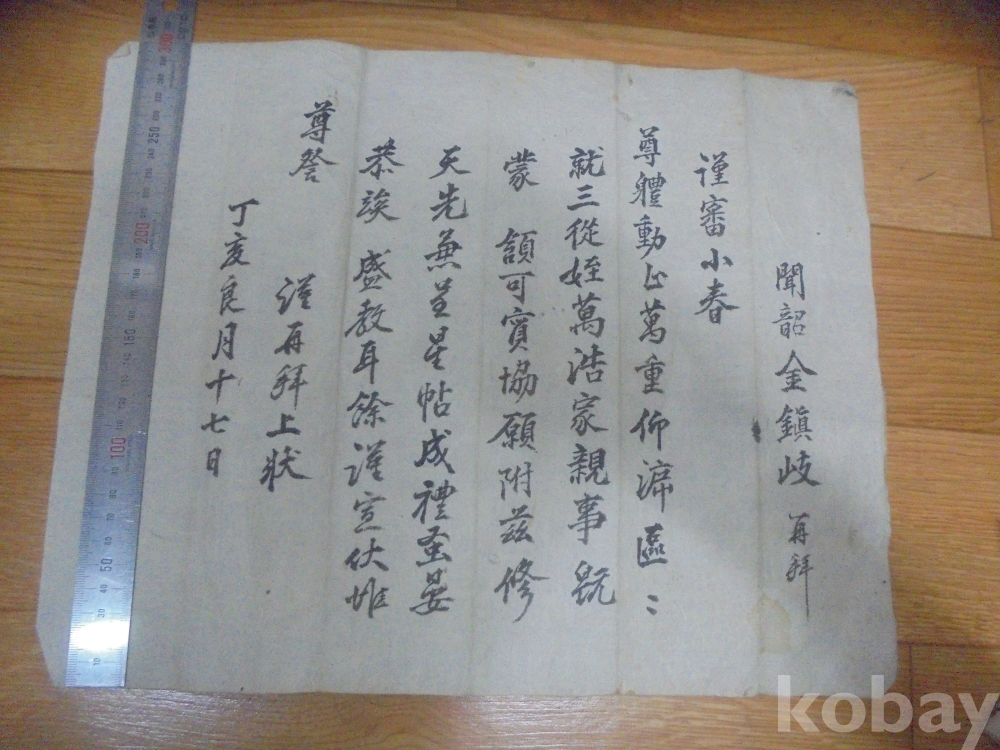 聞韶金鎭岐 再拜
謹審小春
尊體動止萬重仰溸區〻
就三從姪萬浩家親事旣
蒙 頷可實協願附玆修
天先兼呈星帖成禮蚤晏
恭竢 盛敎耳餘謹宣伏惟
尊詧
謹再拜上狀
丁亥良月十七日
kobay